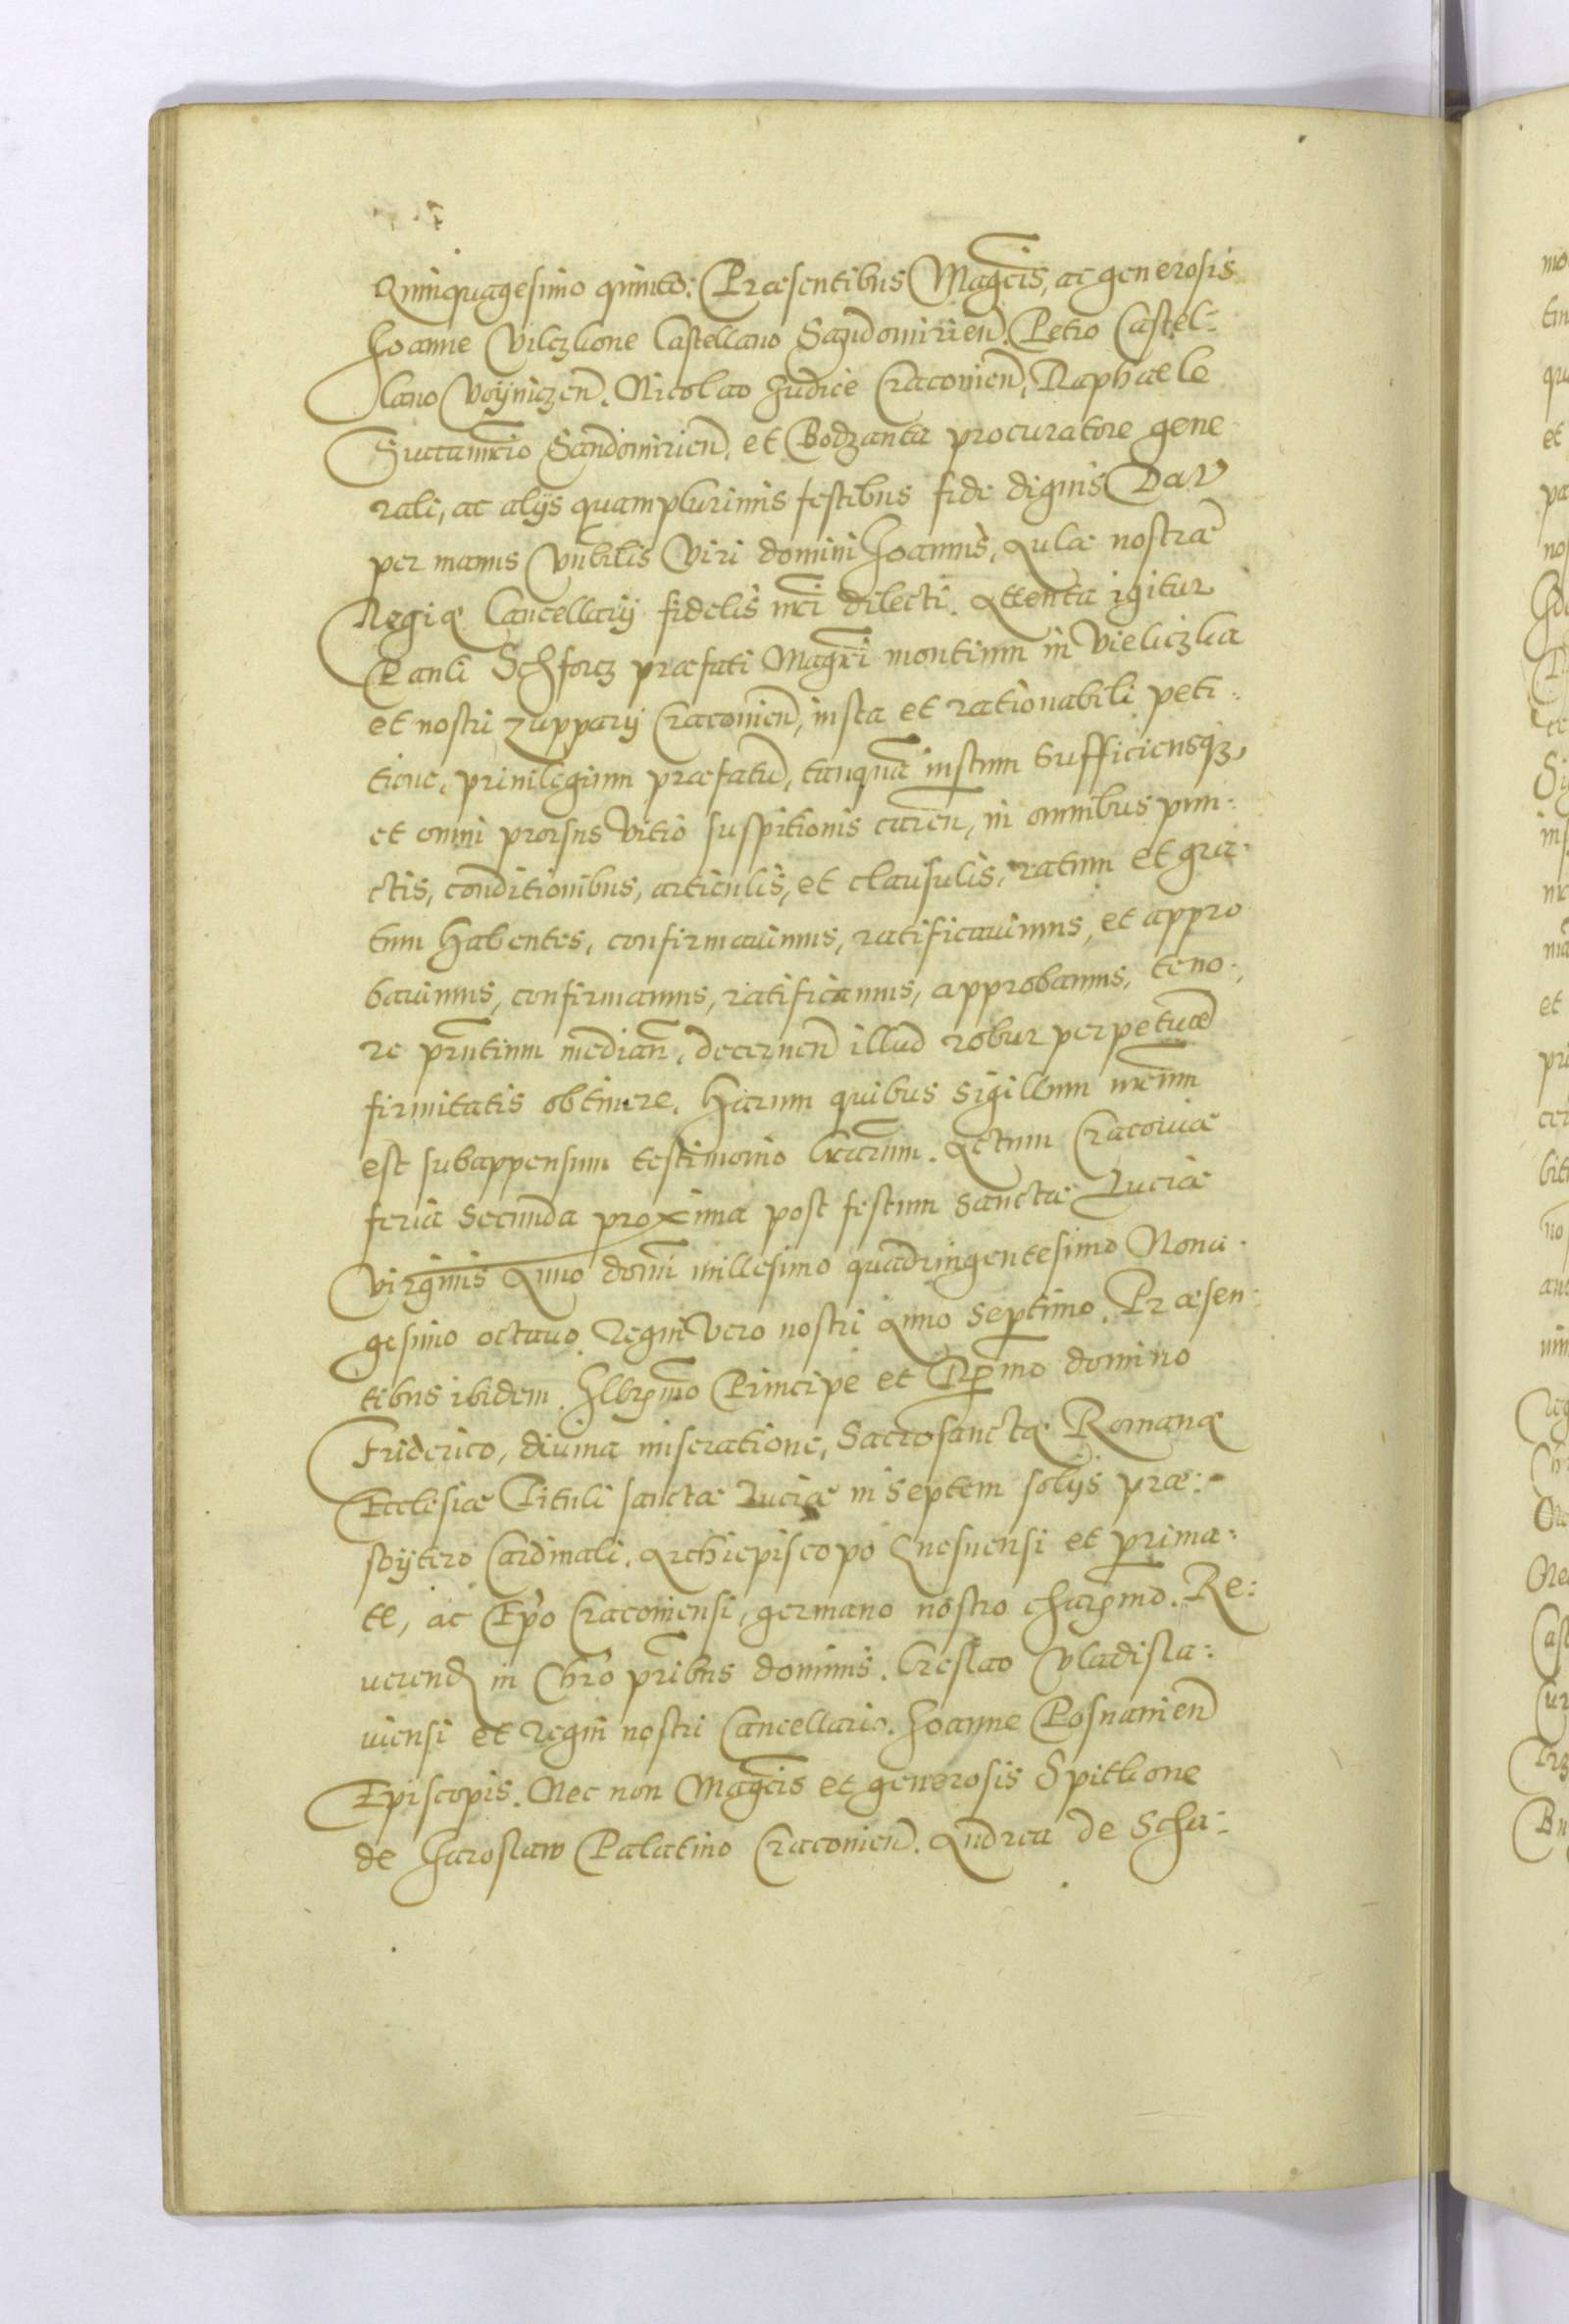 Quinquagesimo quinto: Præsentibus Magcis, ac generosis
Joanne Vilczkone Castellano Sandomirien. Petro Castel:
lano Voyniczen. Nicolao Judice Cracouien, Raphaele
Succamrio Sandomirien, et Bodzanta procuratore gene
rali, ac alijs quamplurimis testibus fide dignis Dat
per manus Vnbilis Viri domini Joannis, Aulæ nostræ
Regię Cancellarij fidelis nri dilecti. Attenta igitur
Pauli Schforcz præfati Magri montium in Vieliczka
et nostri zupparij Cracouien, iusta et rationabili peti:
tione, priuilegium præfatu, tanqua iustum sufficiensq3,
et omni prorsus Vitio suspitionis caren, in omnibus pun:
ctis, conditionibus, articulis, et clausulis, ratum et gra:
tum habentes, confirmauimus, ratificauimus, et appro
bauimus, confirmamus, ratificamus, approbamus, teno:
re pntium median, decernen illud robur perpetuæ
firmitatis obtinere. Harum quibus sigillum nrum
est subappensum testimonio lrarum. Actum Cracouiæ
feria secunda proxima post festum sanctæ Luciæ
Virginis Anno domi millesimo quadringentesimo Nona:
gesimo octauo. Regni Vero nostri Anno septimo. Præsen:
tibus ibidem. Illrmo Principe et Rmo domino
Friderico, diuina miseratione, Sacrosanctę Romanę
Ecclesiæ Tituli sanctæ Luciæ in septem solijs præ:
sbytero Cardinali. Archiepiscopo Gnesnensi et prima:
te, ac Epo Cracouiensi, germano nostro charmo. Re:
uerend in Chro pribus dominis. Creslao Vladisla:
uiensi et Regni nostri Cancellario. Joanne Posnanien
Episcopis. Nec non Magcis et generosis Spitkone
de Jaroslaw Palatino Cracouien. Andrea de Scha: